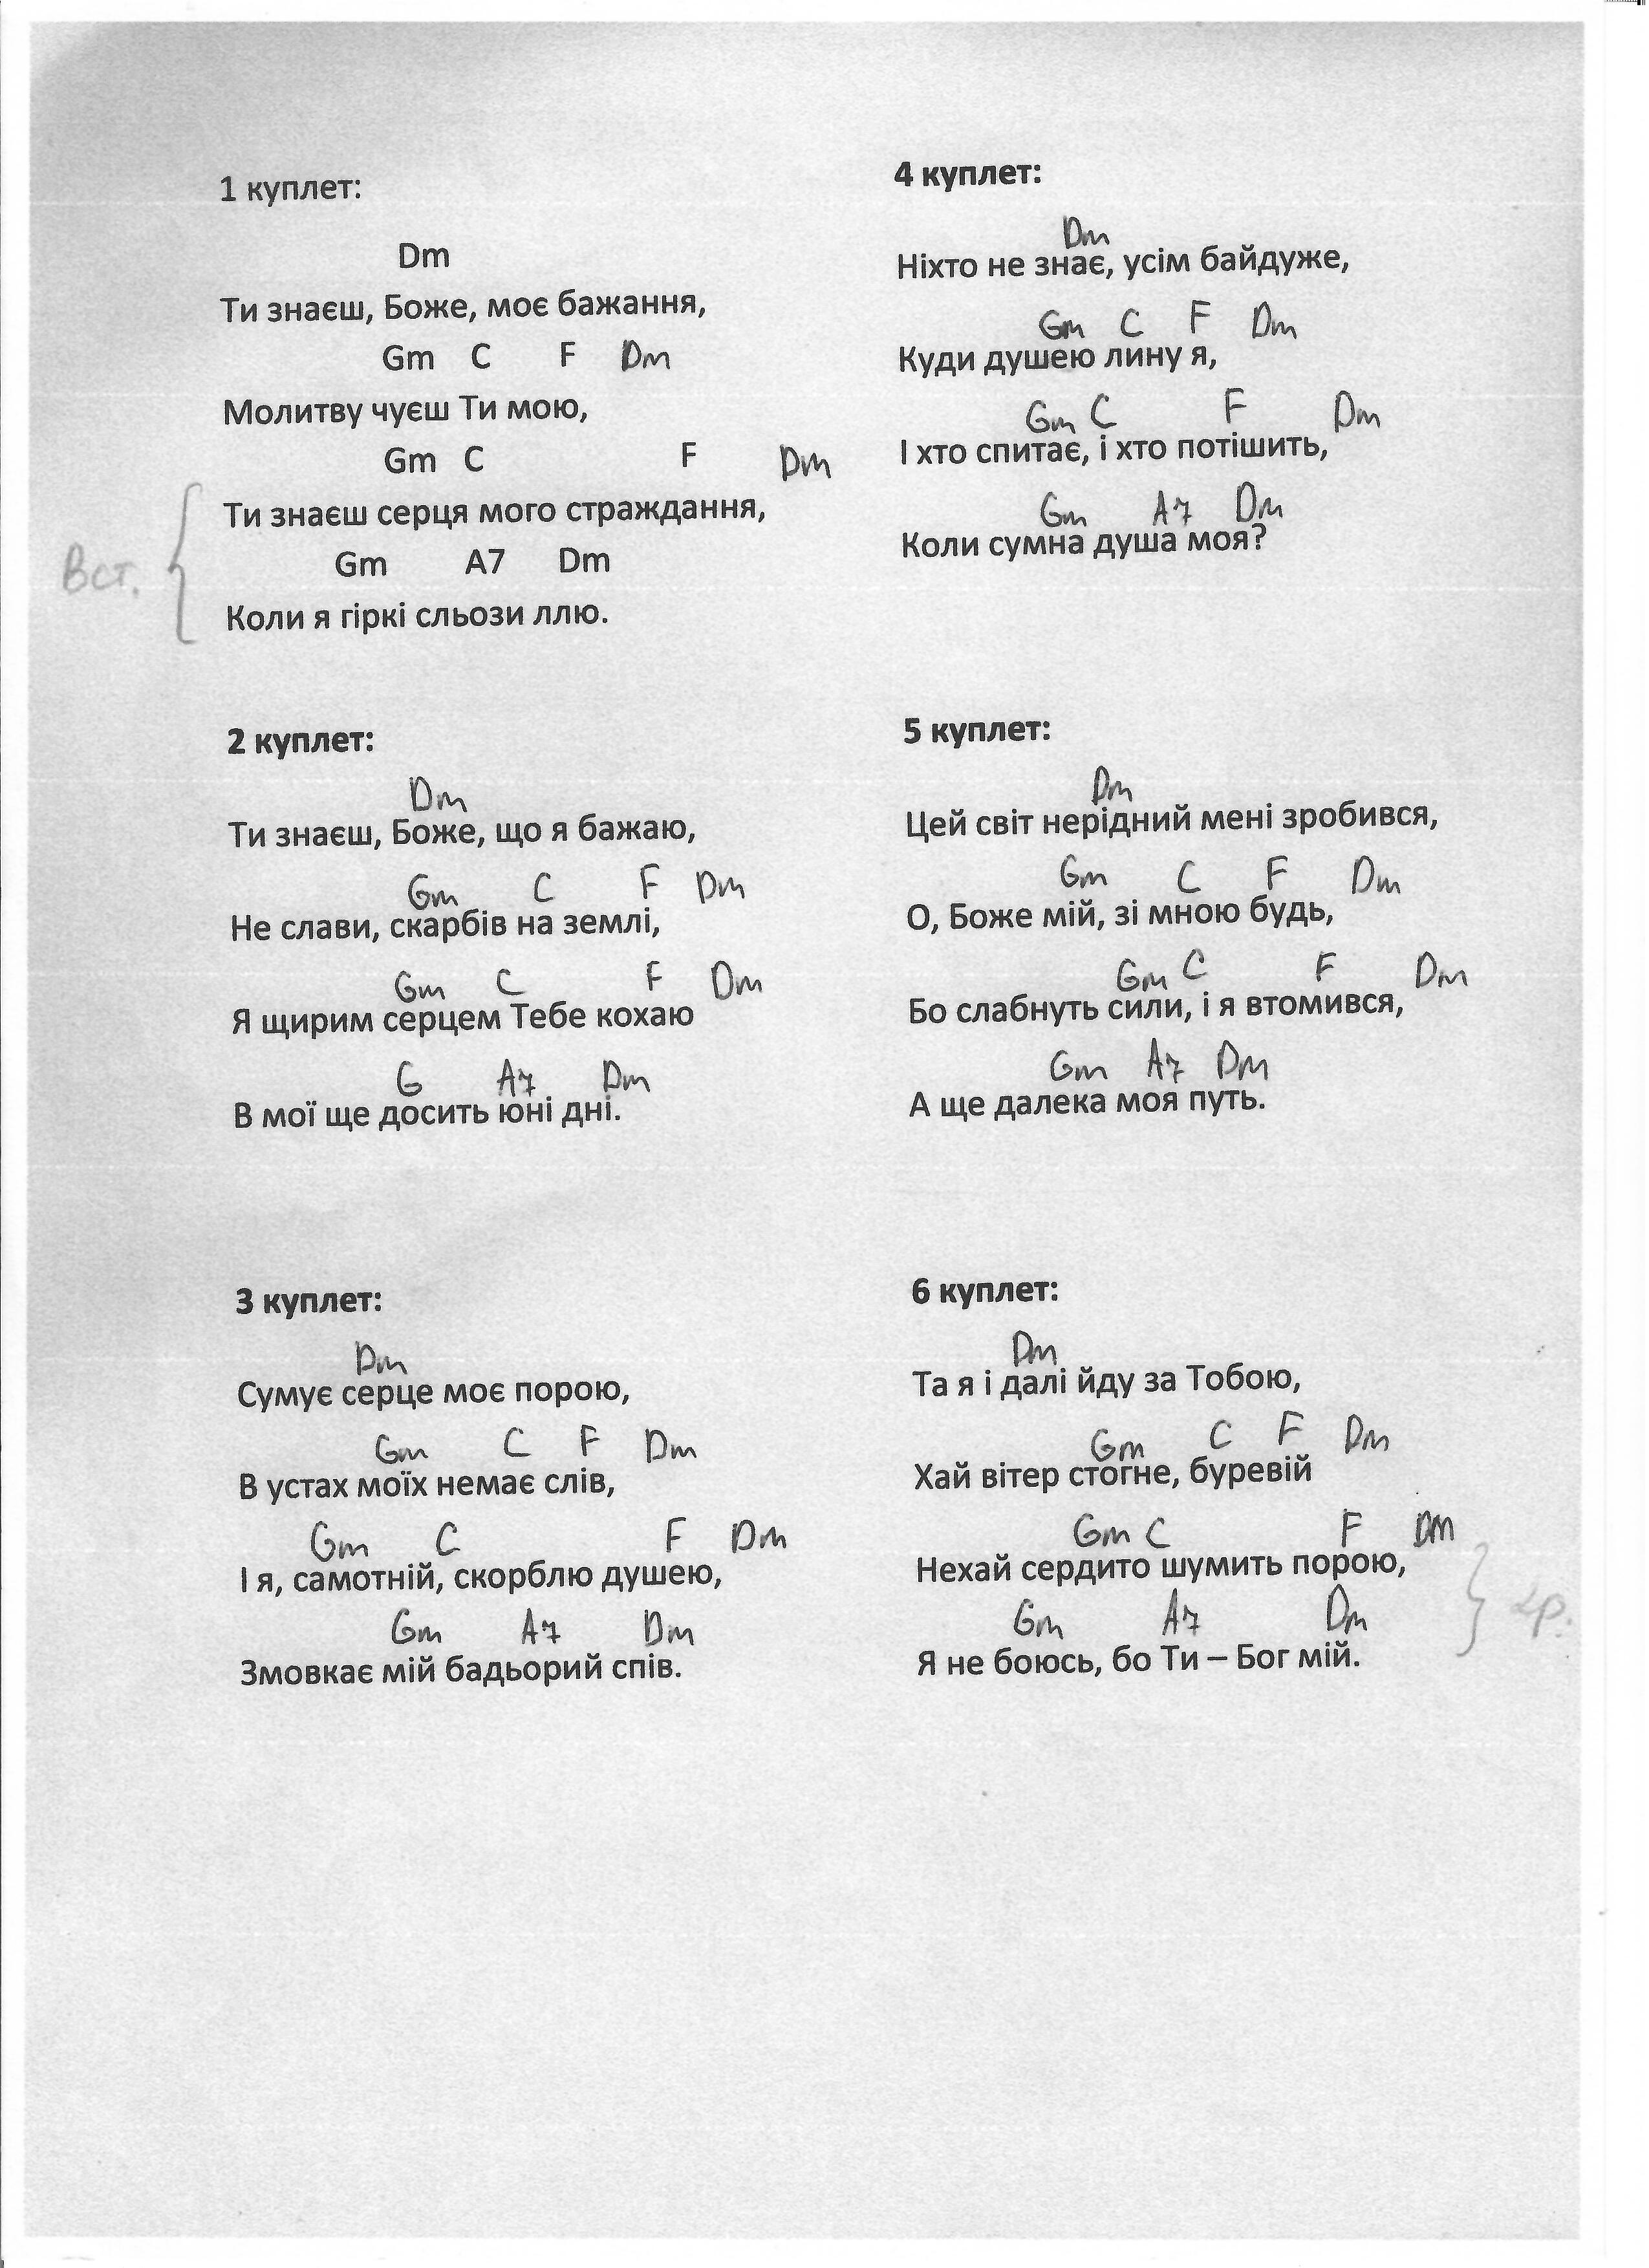 1 куплет:
Dm
Ти знаєш, Боже, моє бажання,
Gm C F Dm
Молитву чуєш Ти мою,
Gm C F Dm
Ти знаєш серця мого страждання,
Вст.
Gm A7 Dm
Коли я гіркі сльози ллю.
2 куплет:
Dm
Ти знаєш, Боже, що я бажаю,
Gm C F Dm
Не слави, скарбів на землі,
Gm C F Dm
Я щирим серцем Тебе кохаю
G A7 Dm
В мої ще досить юні дні.
3 куплет:
Dm
Сумує серце моє порою,
Gm C F Dm
В устах моїх немає слів,
Gm C F Dm
І я, самотній, скорблю душею,
Gm A7 Dm
Змовкає мій бадьорий спів.
4 куплет:
Dm
Ніхто не знає, усім байдуже,
Gm C F Dm
Куди душею лину я,
Gm C F Dm
І хто спитає, і хто потішить,
Gm A7 Dm
Коли сумна душа моя?
5 куплет:
Dm
Цей світ нерідний мені зробився,
Gm C F Dm
О, Боже мій, зі мною будь,
Gm C F Dm
Бо слабнуть сили, і я втомився,
Gm A7 Dm
А ще далека моя путь.
6 куплет:
Dm
Та я і далі йду за Тобою,
Gm C F Dm
Хай вітер стогне, буревій
Gm C F Dm
Нехай сердито шумить порою,
Gm A7 Dm
2р.
Я не боюсь, бо Ти – Бог мій.